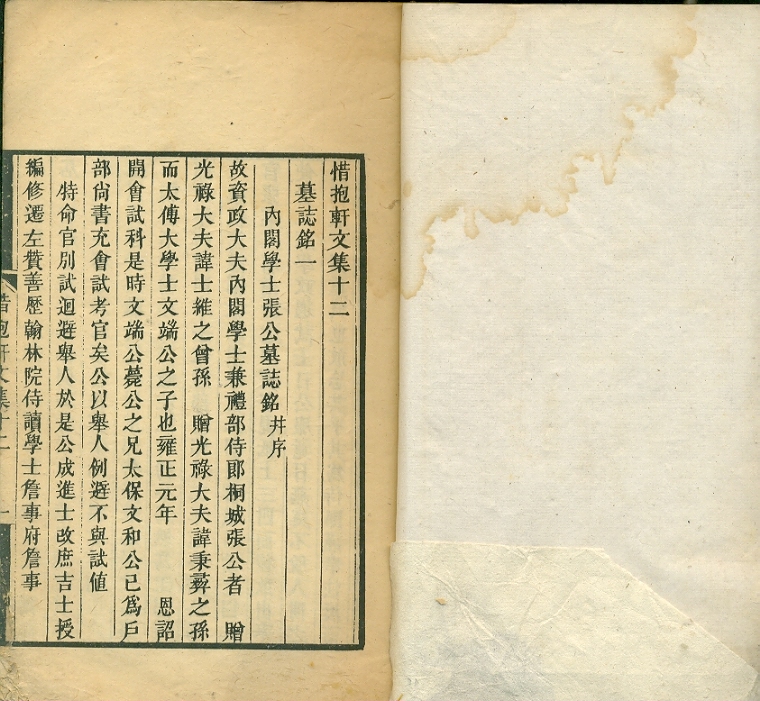 惜抱軒文集十二
墓誌銘一
內閣學士張公墓誌銘 并序
故資政大夫內閣學士兼禮部侍郎桐城張公者 贈
光祿大夫諱士維之曾孫 贈光祿大夫諱秉彝之孫
而太傅大學士文端公之子也雍正元年 恩詔
開會試科是時文端公薨公之兄太保文和公已爲戶
部尙書充會試考官矣公以舉人例避不與試値
特命官別試迴避舉人於是公成進士改庶吉士授
編修遷左贊善歷翰林院侍讀學士詹事府詹事
惜抱軒文集十二 一